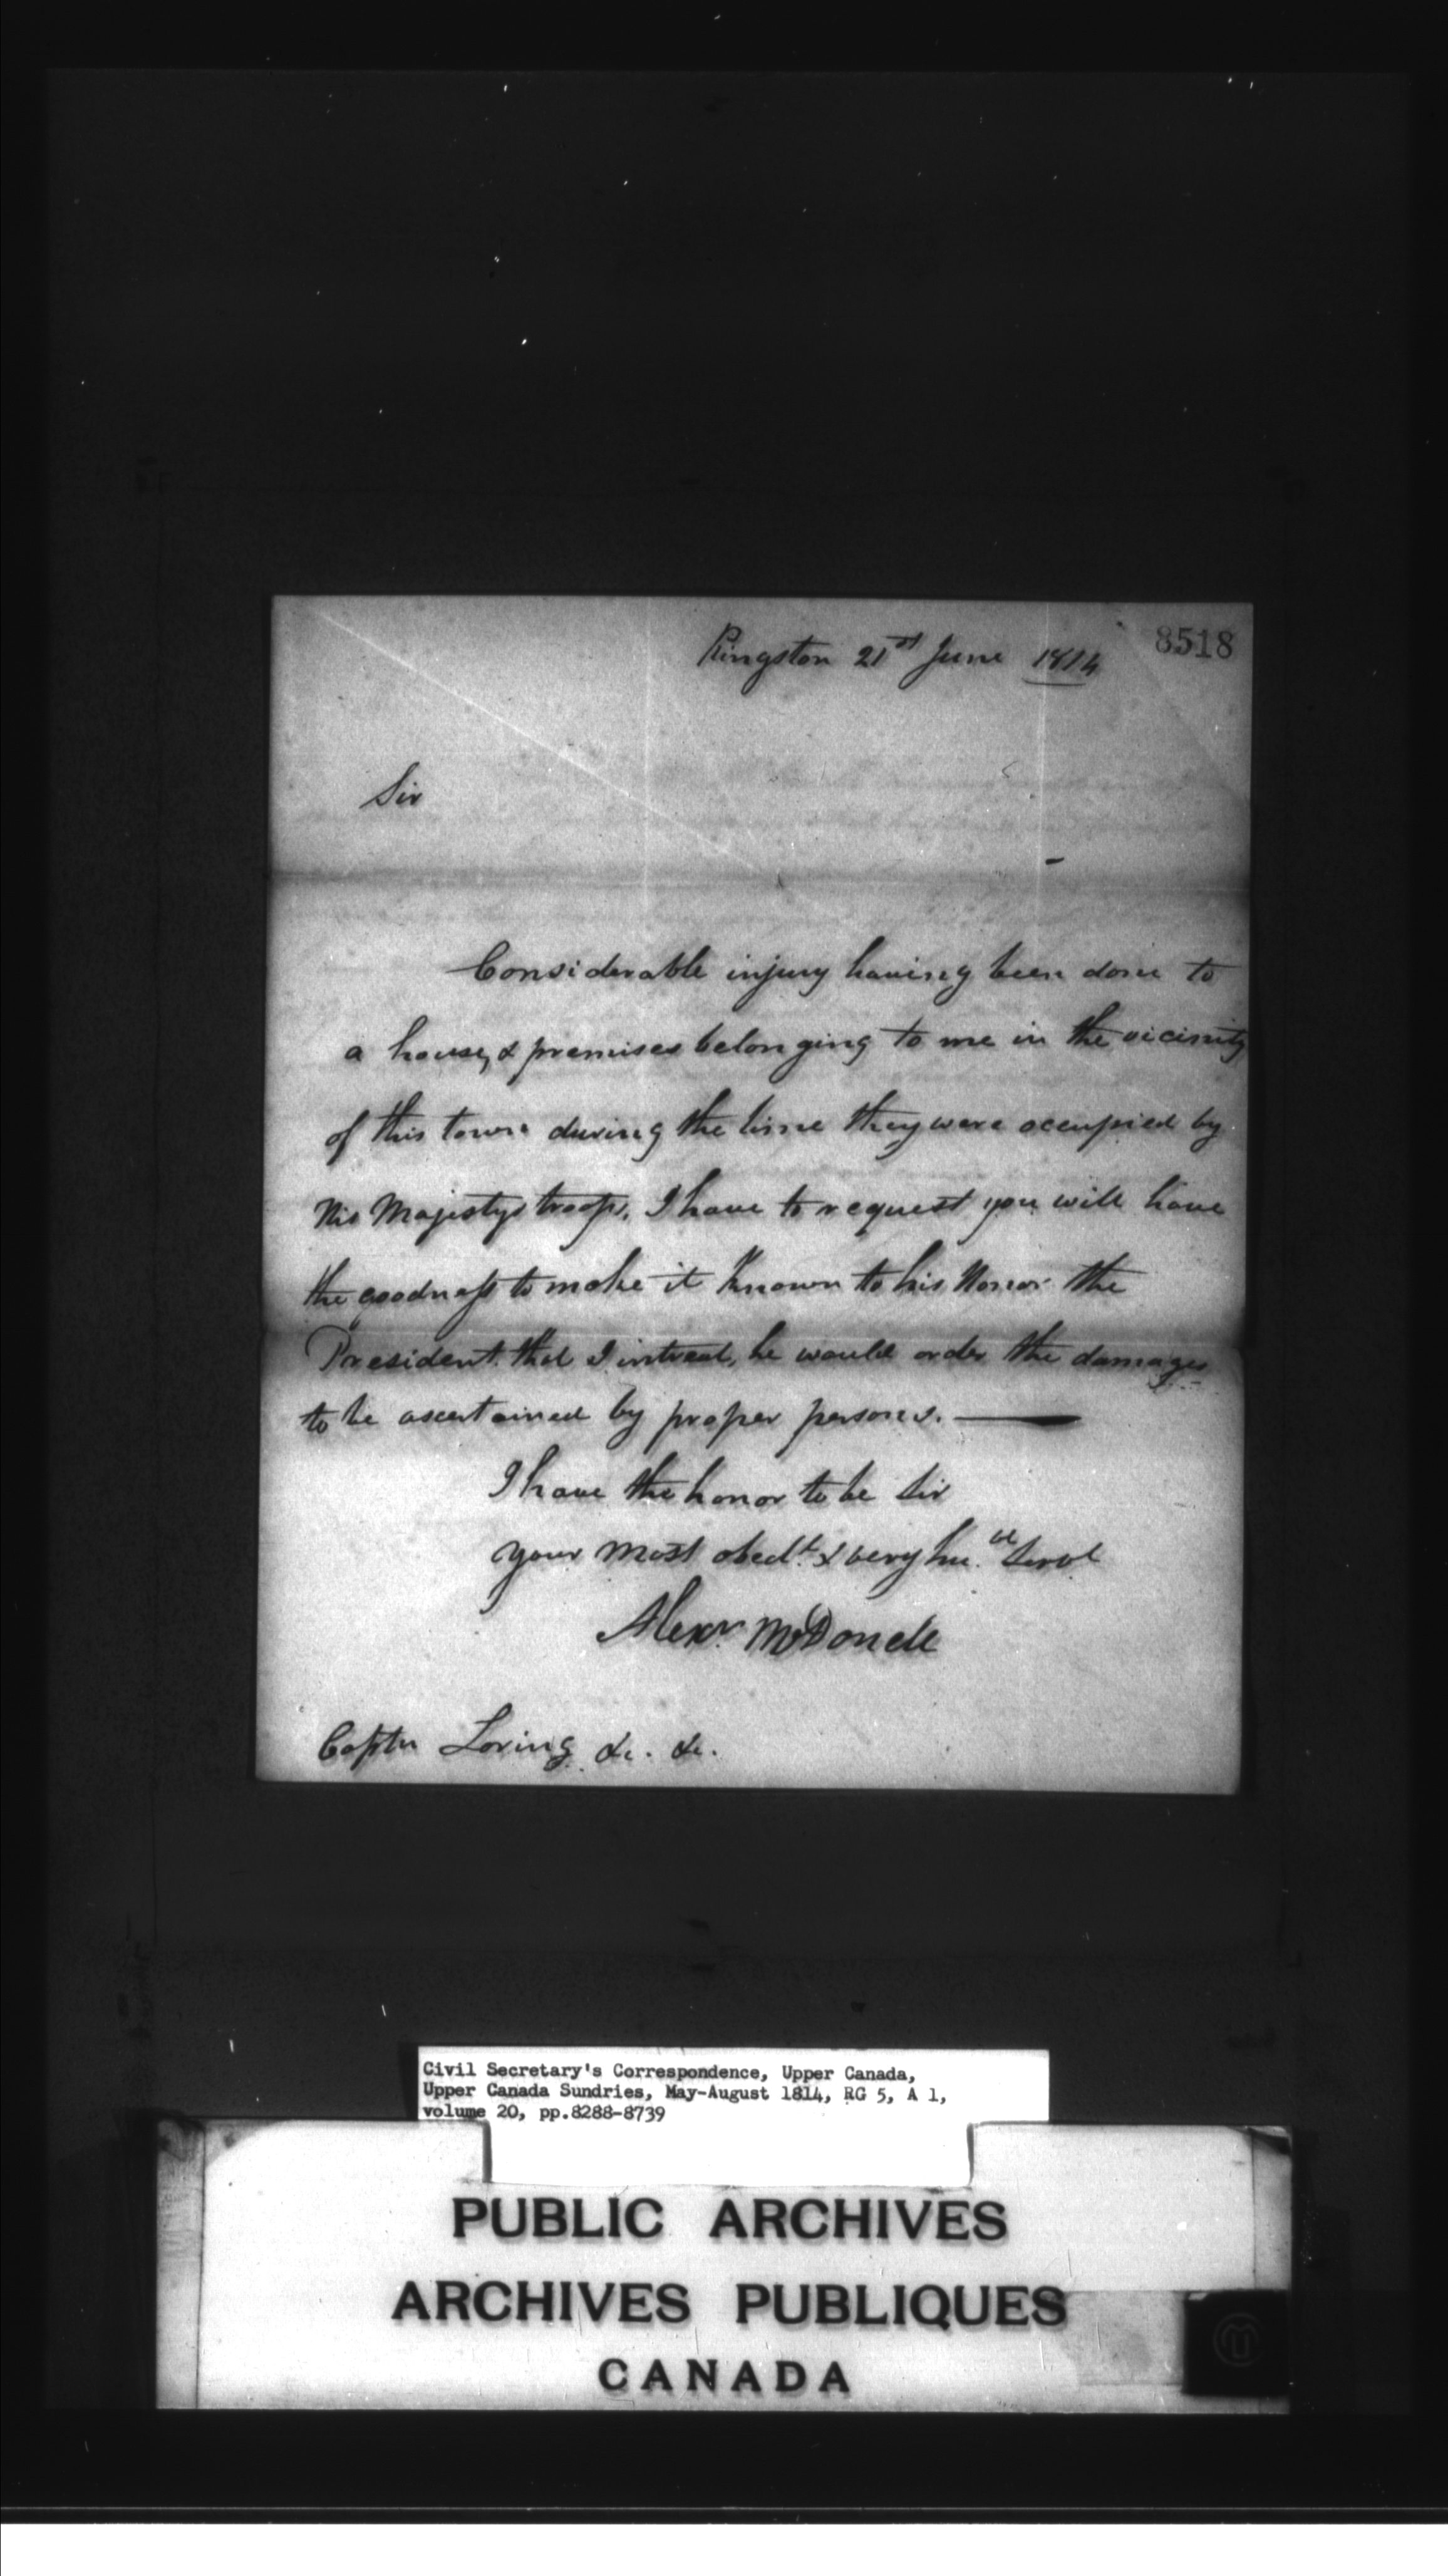 8518
Kingston 21st June 1814
Sir
Considerable injury having been done to
a house, & premises belonging to me in the vicinity
of this town during the time they were occupied by
His Majestys troops, I have to request you will have
the goodness to make it known to his Honor the
President that I intreat, he would order the damages
to be ascertained by proper persons. —
I have the honor to be Sir
your most obedt. & very hu.ble Servt
Alexr McDonell
Captn Loring &c. &c.
Civil Secretary's Correspondence, Upper Canada,
Upper Canada Sundries, May-August 1814, RG 5, A 1,
volume 20, pp.8288-8739
PUBLIC ARCHIVES
ARCHIVES PUBLIQUES
CANADA